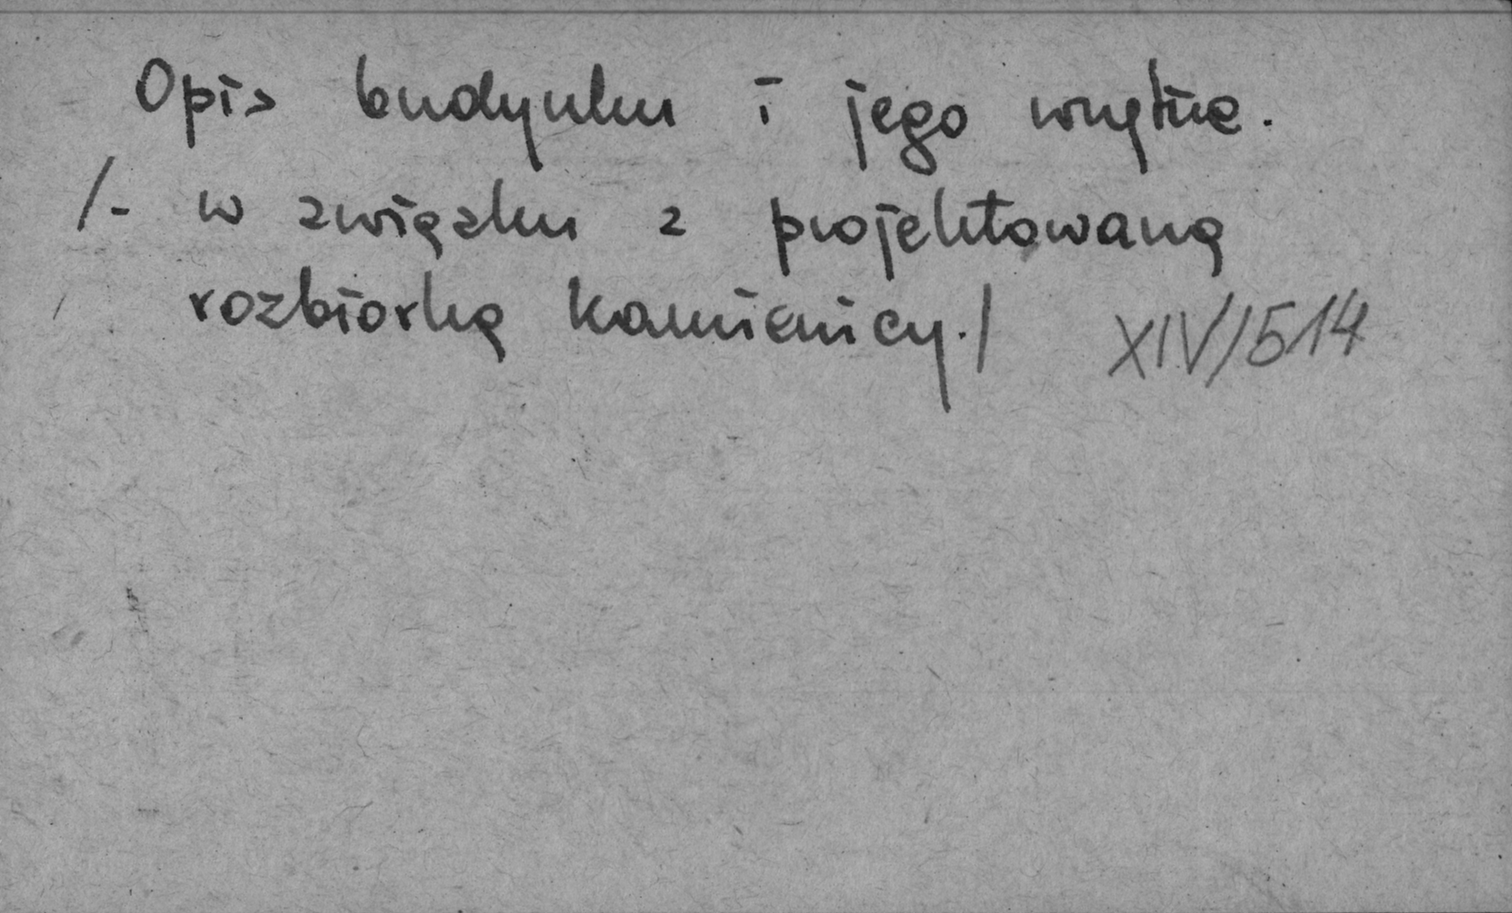 Opis budynku i jego wnętrz.
/- w związku z projektowaną
rozbiorką kamienicy./ XIV/514